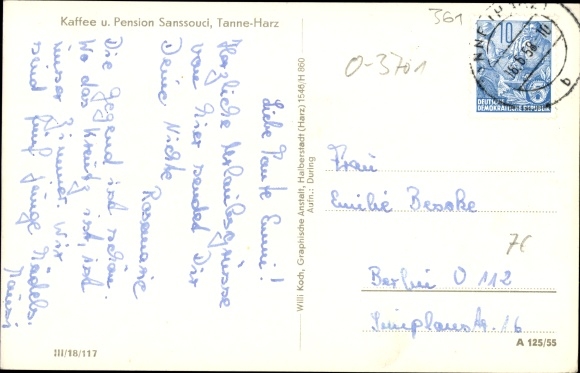 Kaffee u. Pension Sanssouci, Tanne-Harz
361
0-3701
10
DEUTSCHE
DEMOKRATISCHE REPUBLIK
16.6.58
Liebe Tante Emmi!
Herzliche Urlaubsgrüsse
von hier sendet Dir
Deine Nichte
Rosemarie
Die Gegend ist schön.
Wo das Kreuz ist, ist
unser Zimmer. Wir
sind fünf junge Mädels.
Willi Koch, Graphische Anstalt, Halberstadt (Harz) 1546/H 860
Aufn.: Düring
Frau
Emilie Beseke
7€
Berlin O 112
Simplonstr. 16
III/18/117
A 125/55